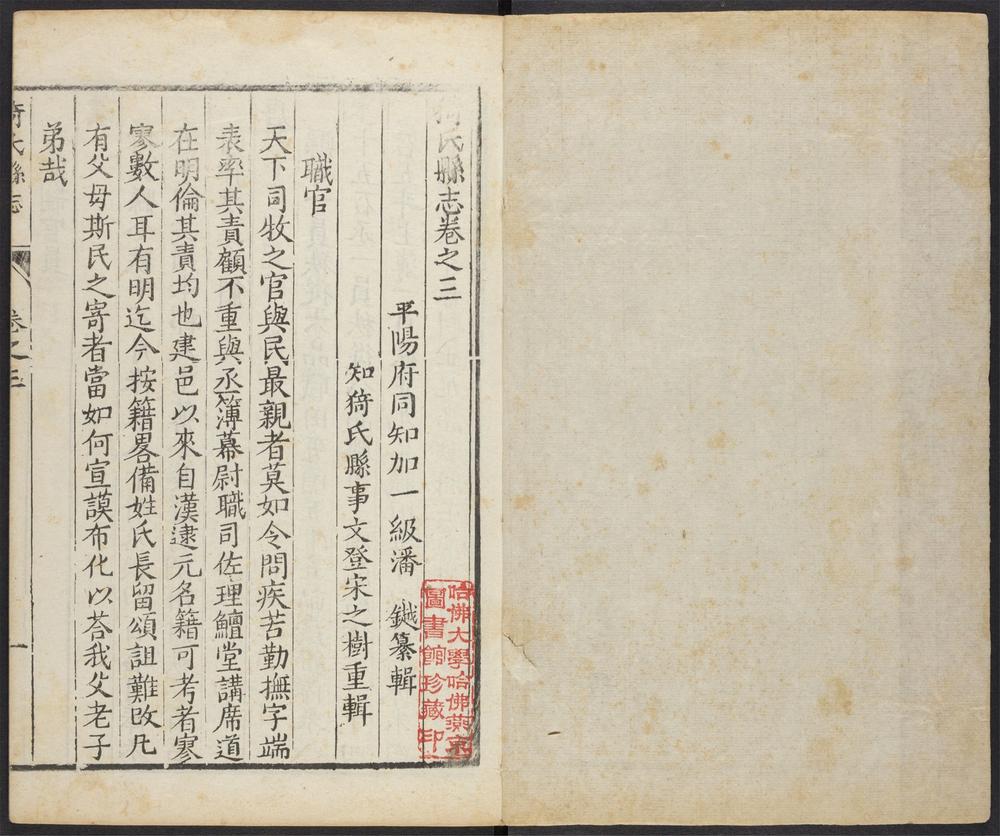 猗氏縣志卷之三
平陽府同知加一級潘 鉞纂輯
知猗氏縣事文登宋之樹重輯
職官
天下司牧之官與民最親者莫如令問疾苦勤撫字端
表率其責顧不重與丞簿幕尉職司佐理鱣堂講席道
在明倫其責均也建邑以來自漢逮元名籍可考者寥
寥數人耳有明迄今按籍畧備姓氏長留頌詛難改凡
有父母斯民之寄者當如何宣謨布化以荅我父老子
弟哉
猗氏縣志 卷之三 一
哈佛大學哈佛燕京
圖書館珍藏印